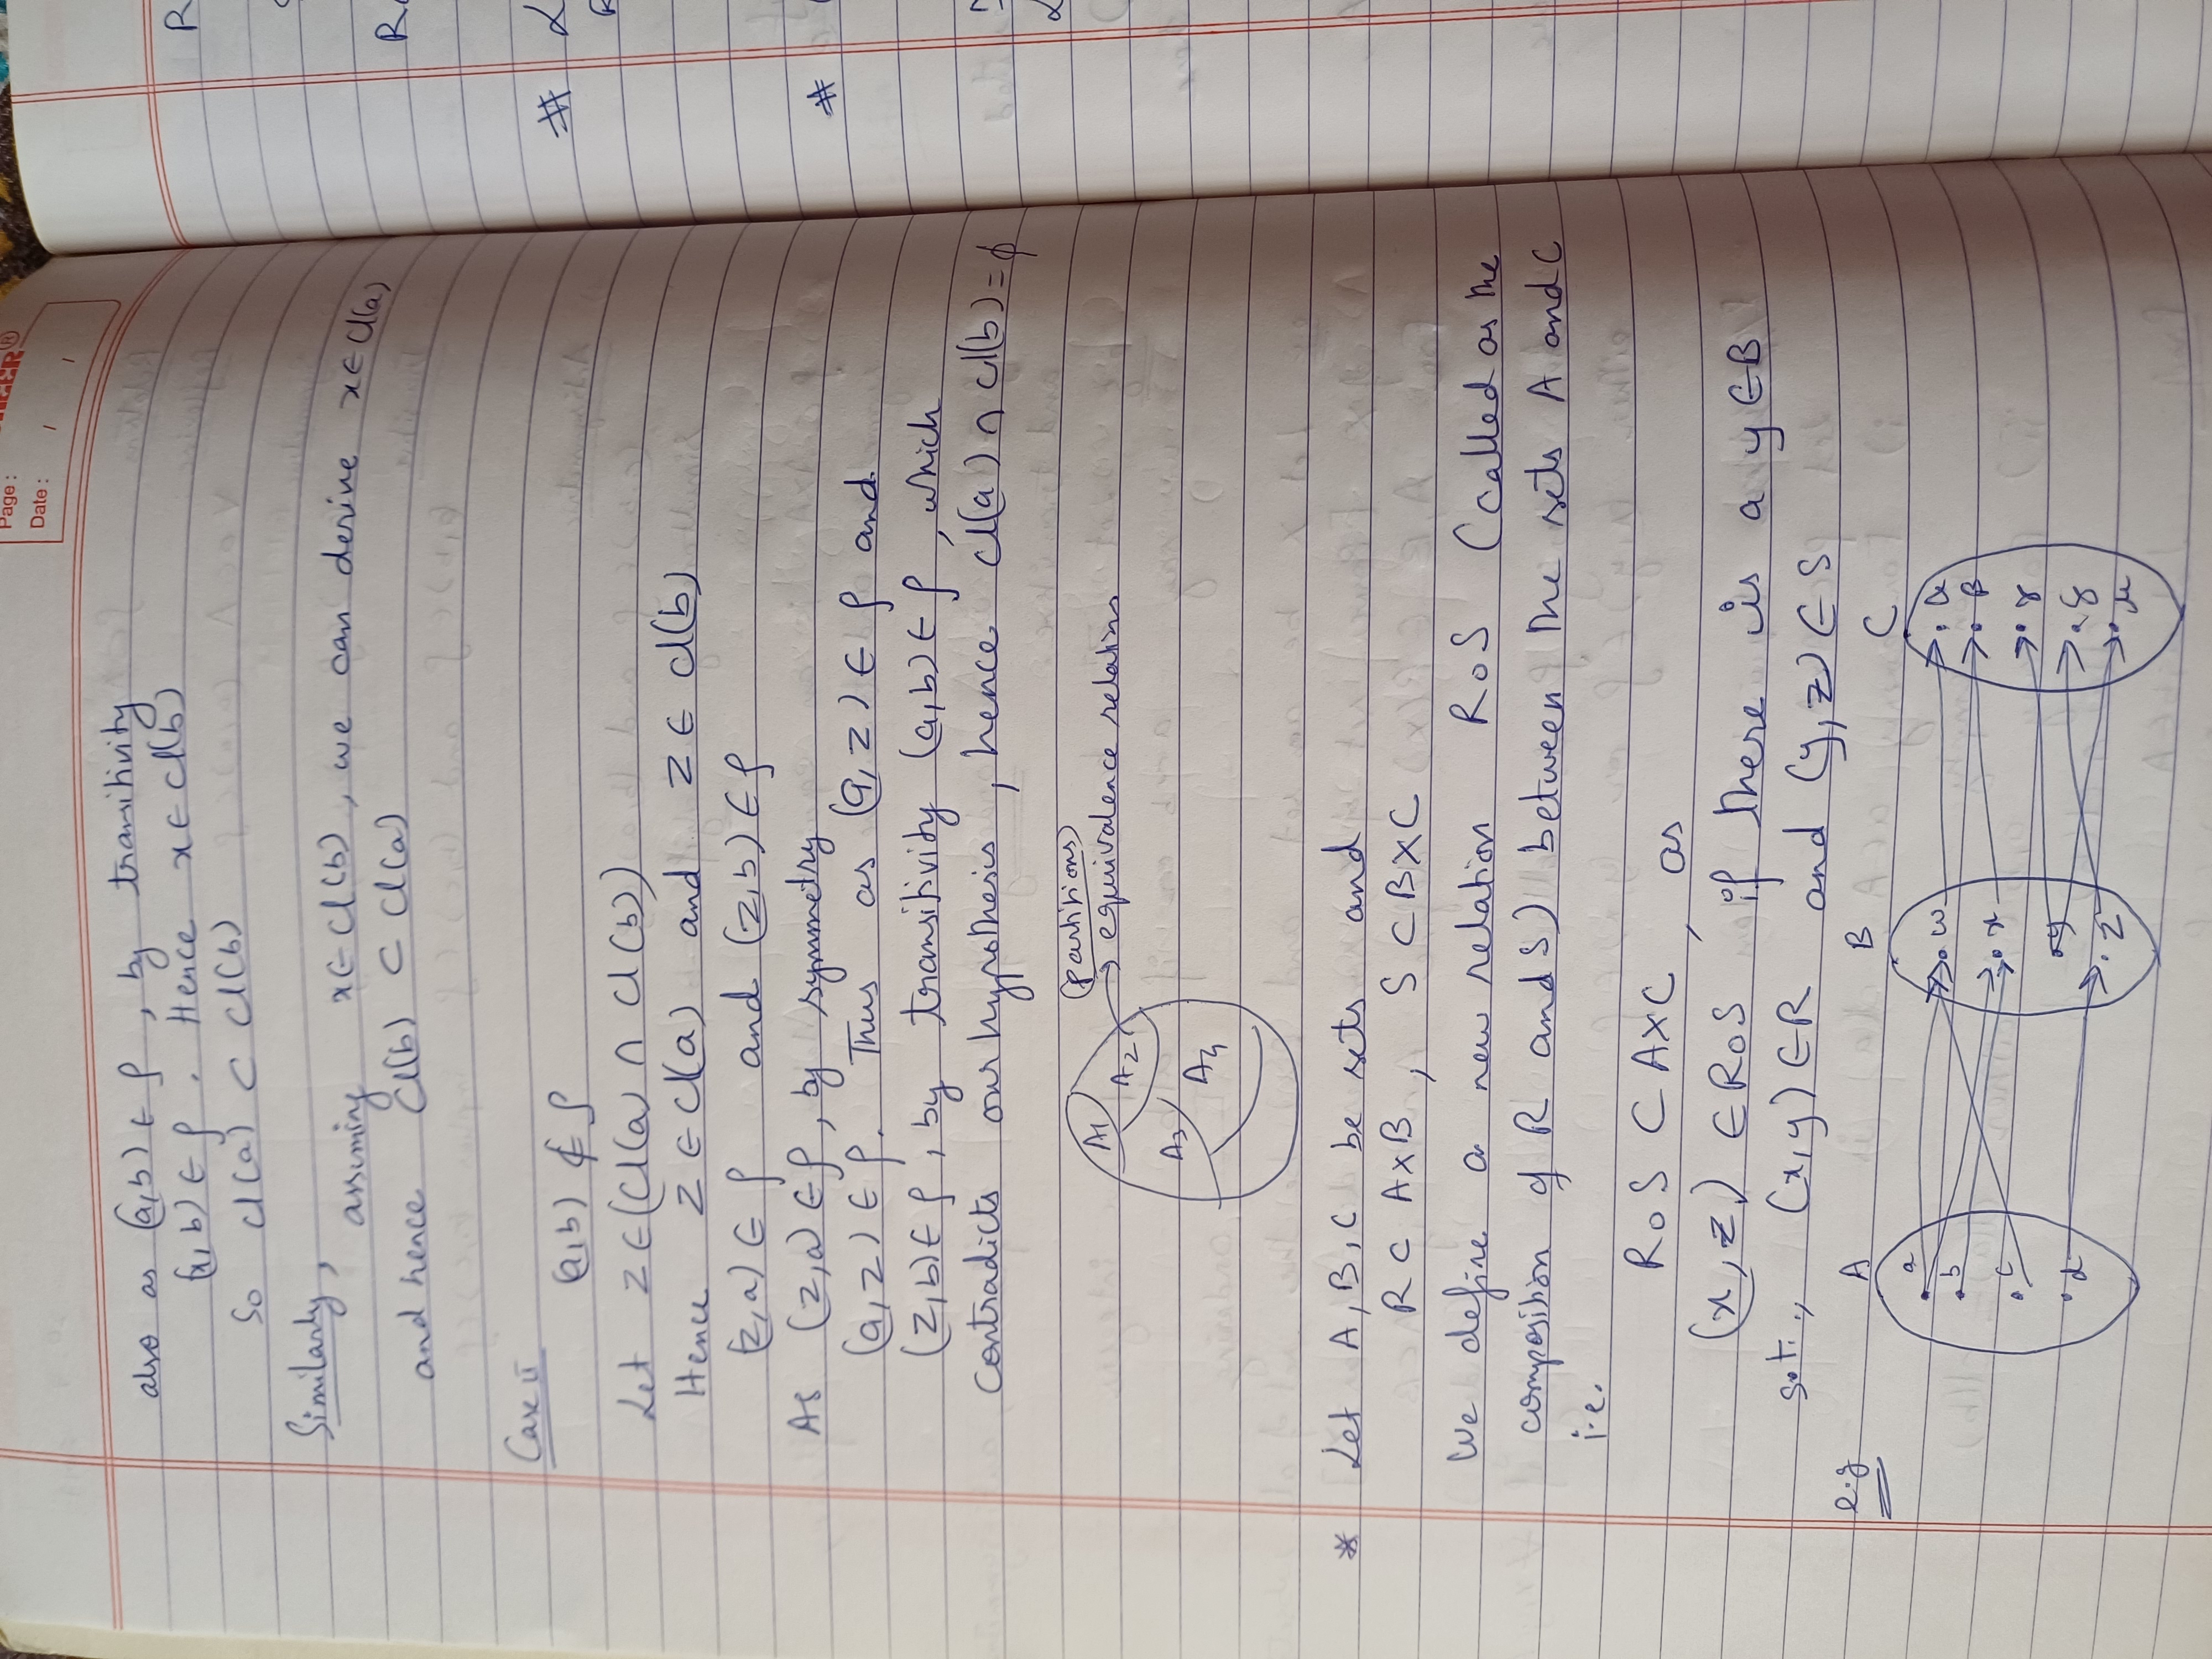 Page :
Date : / /
also as (a,b) ∈ ρ , by transitivity
(x,b) ∈ ρ . Hence x ∈ cl(b)
So cl(a) ⊂ cl(b)
Similarly,
assuming x ∈ cl(b) , we can derive x ∈ cl(a)
and hence cl(b) ⊂ cl(a)
Case II
(a,b) ∉ ρ
Let z ∈ (cl(a) ∩ cl(b))
Hence z ∈ cl(a) and z ∈ cl(b)
(z,a) ∈ ρ and (z,b) ∈ ρ
As (z,a) ∈ ρ , by symmetry
(a,z) ∈ ρ. Thus as (a,z) ∈ ρ and
(z,b) ∈ ρ , by transitivity (a,b) ∈ ρ , which
Contradicts our hypothesis , hence cl(a) ∩ cl(b) = ϕ
(partitions)
→ equivalence relation
A1 A2
A3 A4
* Let A, B, C be sets and
R ⊂ A×B , S ⊂ B×C
We define a new relation RoS (called as the
composition of R and S) between the sets A and C
i.e.
RoS ⊂ A×C , as
(x,z) ∈ RoS if there is a y ∈ B
s.t., (x,y) ∈ R and (y,z) ∈ S
e.g A B C
a w α
b x β
c y γ
d z δ
μ
#
#